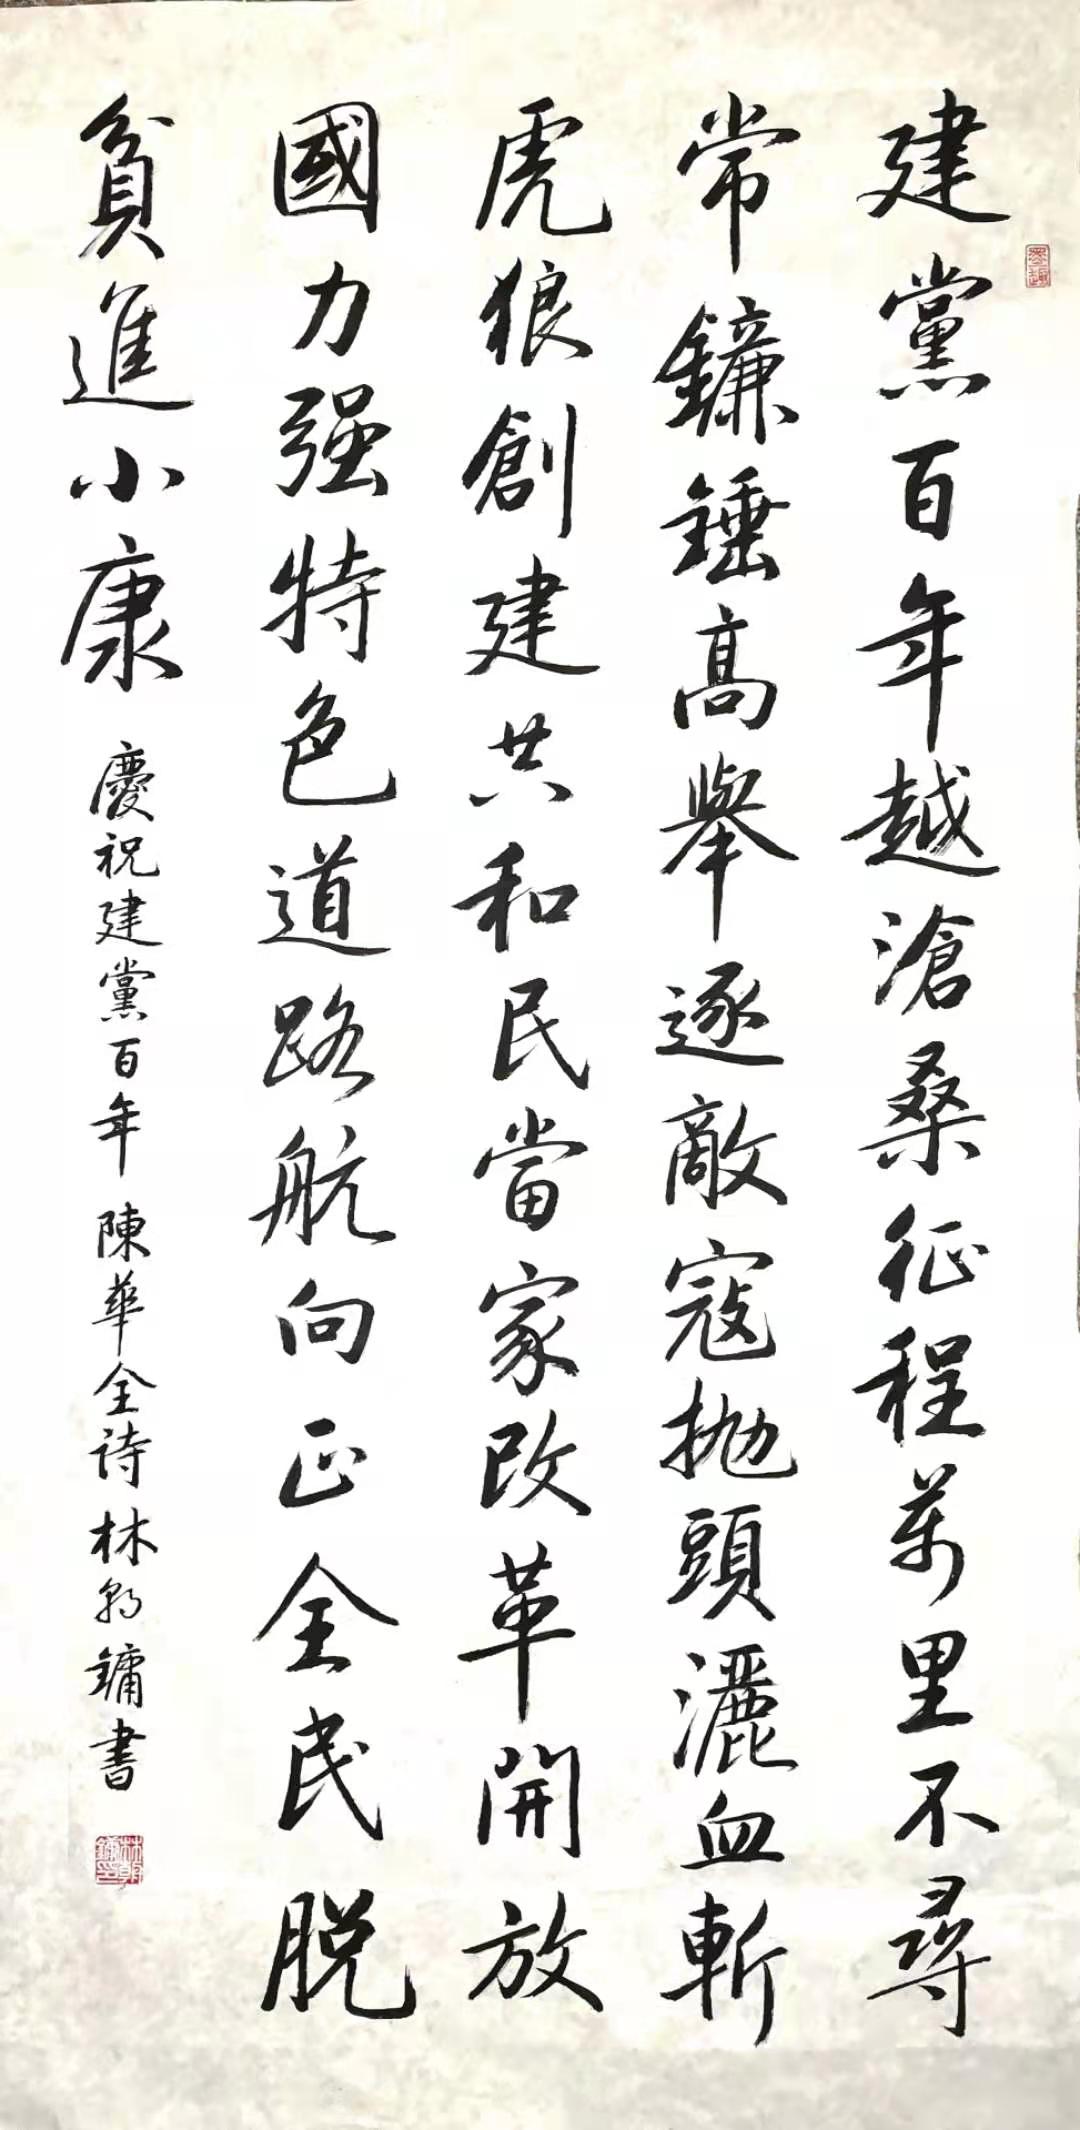 建黨百年越滄桑征程萬里不尋
常鐮錘高舉逐敵寇拋頭灑血斬
虎狼創建共和民當家改革開放
國力强特色道路航向正全民脱
貧進小康
慶祝建黨百年 陳華全詩 林朝鏞書